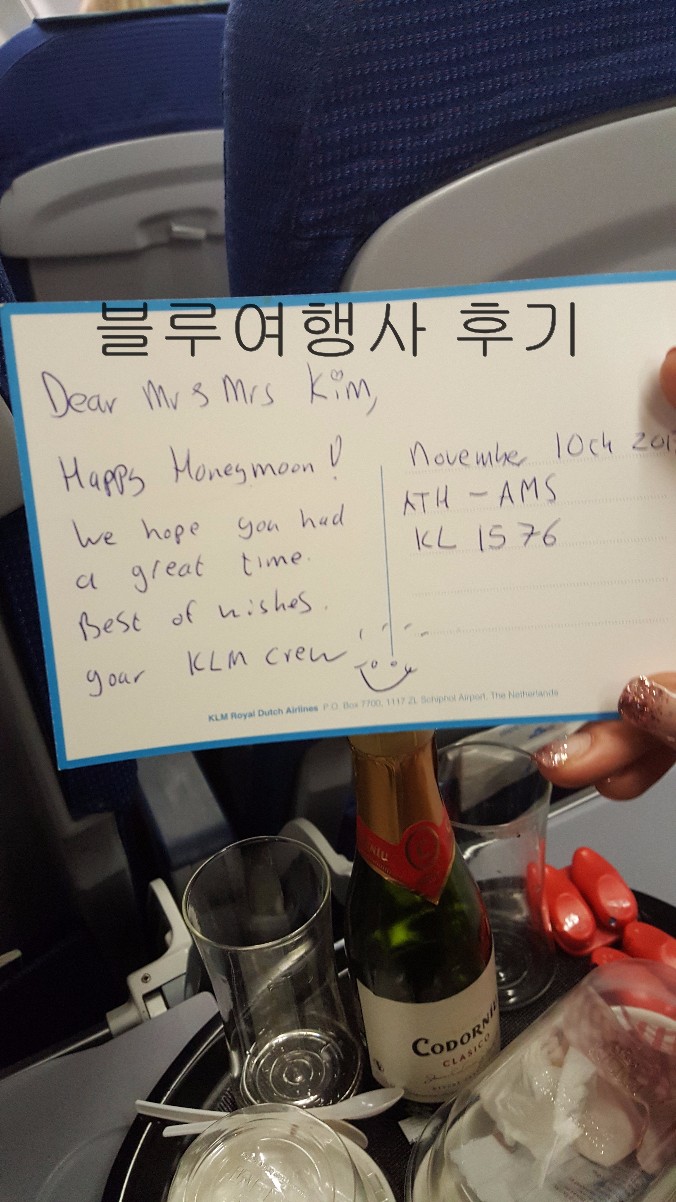 블루여행사 후기
Dear Mr & Mrs Kim,
Happy Honeymoon!
We hope you had
a great time.
Best of wishes.
your KLM crew
November 10th 201
ATH - AMS
KL 1576
KLM Royal Dutch Airlines P.O. Box 7700, 1117 ZL Schiphol Airport, The Netherlands
CODORNÍU
CLASICO